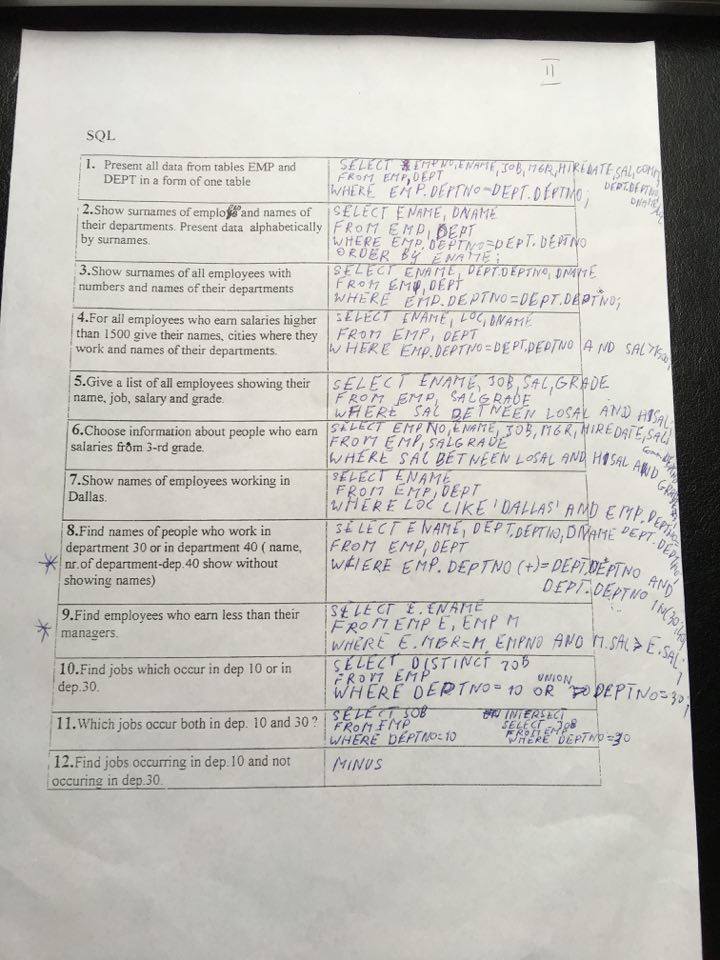 II
SQL
1. Present all data from tables EMP and
DEPT in a form of one table
SELECT EMPNO, ENAME, JOB, MGR, HIREDATE, SAL, COMM,
DEPT.DEPTNO,
FROM EMP, DEPT
WHERE EMP.DEPTNO=DEPT.DEPTNO;
2.Show surnames of emplo and names of
their departments. Present data alphabetically
by surnames.
SELECT ENAME, DNAME
FROM EMP, DEPT
WHERE EMP.DEPTNO=DEPT.DEPTNO
ORDER BY ENAME;
3.Show surnames of all employees with
numbers and names of their departments
SELECT ENAME, DEPT.DEPTNO, DNAME
FROM EMP, DEPT
WHERE EMP.DEPTNO=DEPT.DEPTNO;
4.For all employees who earn salaries higher
than 1500 give their names, cities where they
work and names of their departments.
SELECT ENAME, LOC, DNAME
FROM EMP, DEPT
WHERE EMP.DEPTNO=DEPT.DEPTNO AND SAL>1500;
5.Give a list of all employees showing their
name, job, salary and grade.
SELECT ENAME, JOB, SAL, GRADE
FROM EMP, SALGRADE
WHERE SAL BETWEEN LOSAL AND HISAL;
6.Choose information about people who earn
salaries from 3-rd grade.
SELECT EMPNO, ENAME, JOB, MGR, HIREDATE, SAL,
FROM EMP, SALGRADE
WHERE SAL BETWEEN LOSAL AND HISAL AND
7.Show names of employees working in
Dallas.
SELECT ENAME
FROM EMP, DEPT
WHERE LOC LIKE 'DALLAS' AND EMP.DEPTNO=
DEPT.DEPTNO;
8.Find names of people who work in
department 30 or in department 40 ( name,
nr.of department-dep.40 show without
showing names)
SELECT ENAME, DEPT.DEPTNO, DNAME
FROM EMP, DEPT
WHERE EMP.DEPTNO (+)=DEPT.DEPTNO AND
DEPT.DEPTNO IN(30,40);
9.Find employees who earn less than their
managers.
SELECT E.ENAME
FROM EMP E, EMP M
WHERE E.MGR=M.EMPNO AND M.SAL > E.SAL;
10.Find jobs which occur in dep 10 or in
dep.30.
SELECT DISTINCT JOB
FROM EMP
UNION
WHERE DEPTNO=10 OR DEPTNO=30;
11.Which jobs occur both in dep. 10 and 30 ?
SELECT JOB
FROM EMP
WHERE DEPTNO=10
INTERSECT
SELECT JOB
FROM EMP
WHERE DEPTNO=30
12.Find jobs occurring in dep.10 and not
occuring in dep.30.
MINUS